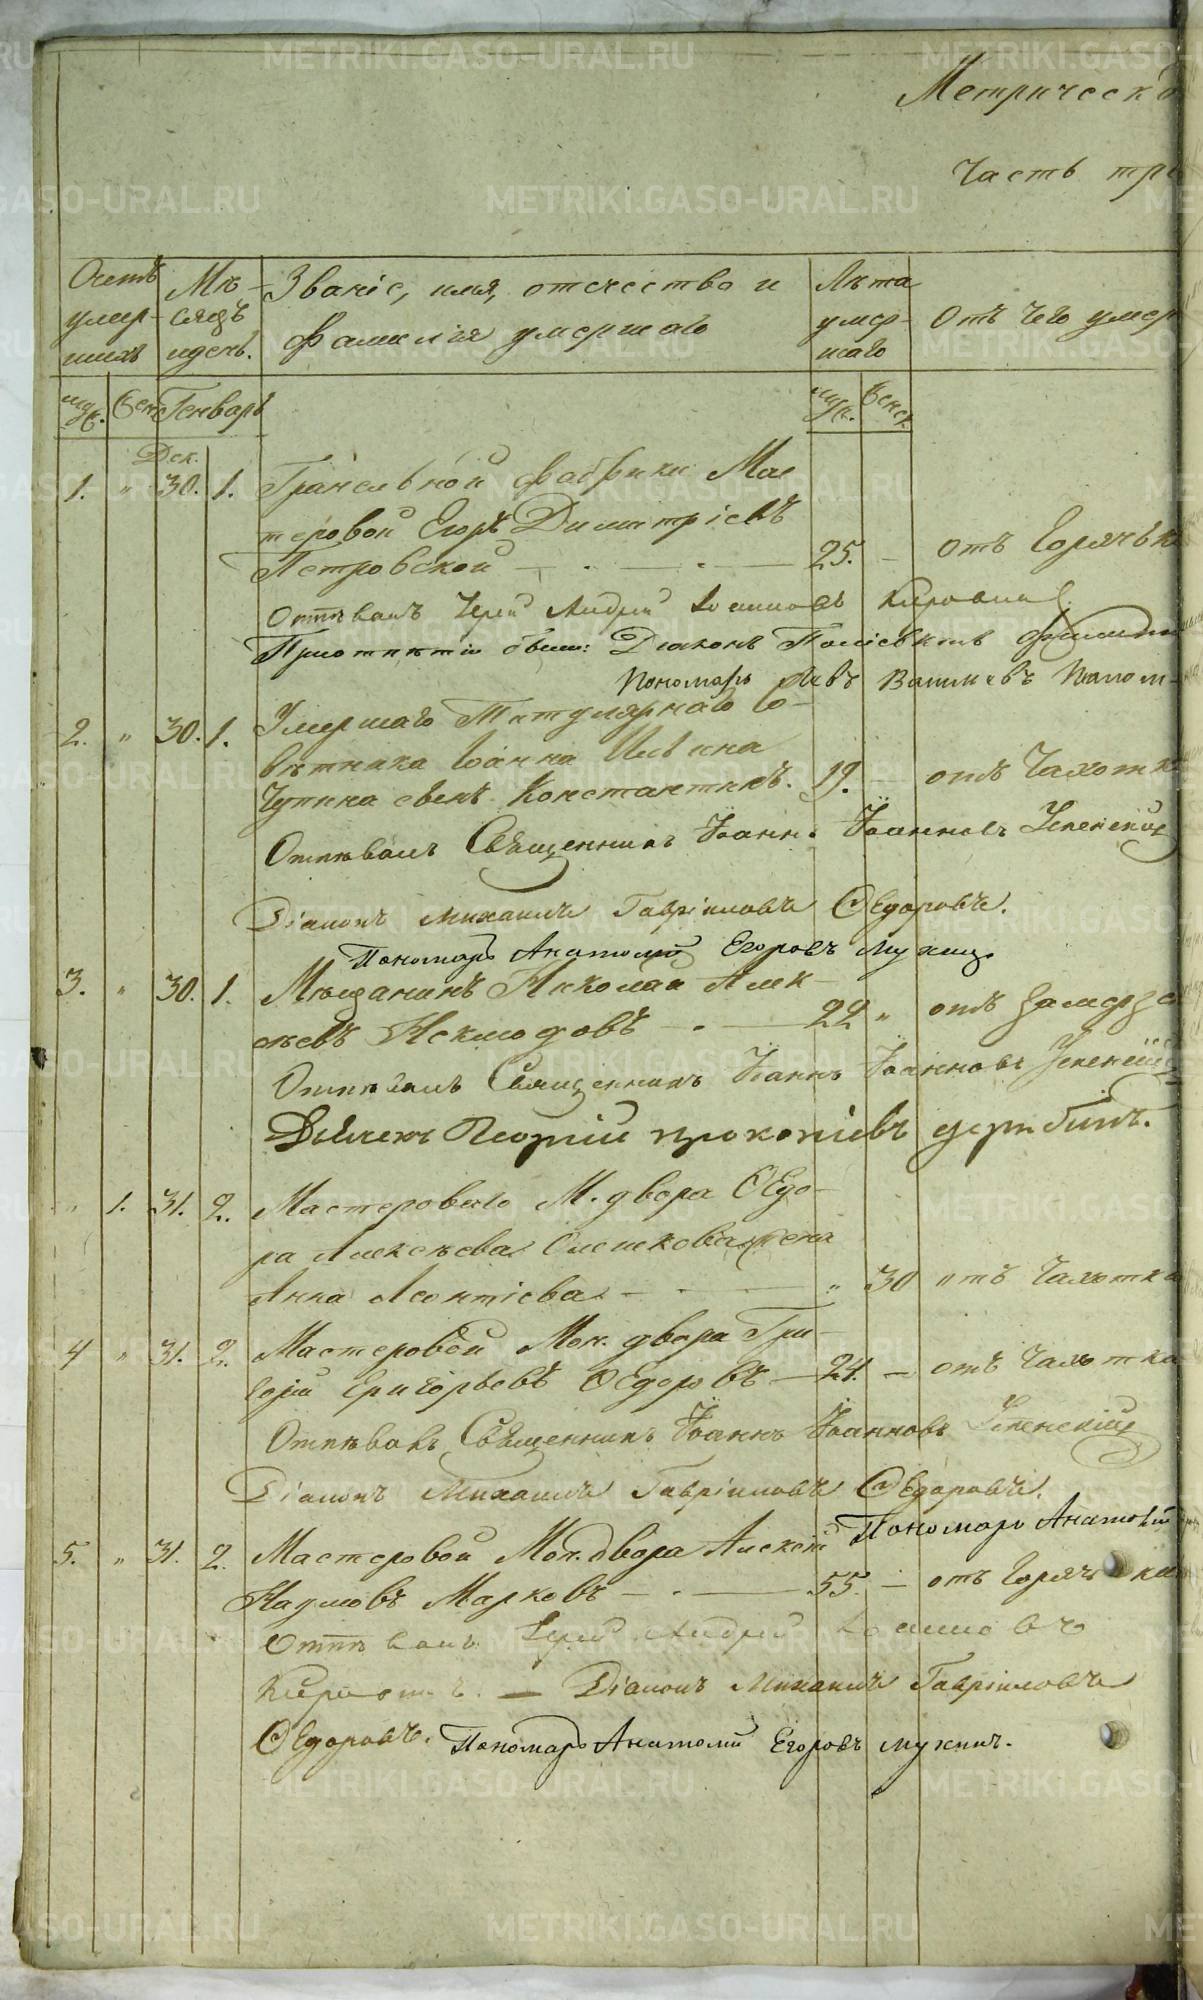 Метрическо
Часть тре
Счетъ умер- шихъ
Мѣ- сяцъ и день.
Званіе, имя, отчество и
фамилія умершаго
Лѣта умер- шаго
Отъ чего умер
муж. женс. Генварь
муж. женск.
Дек.
1. " 30. 1. Гранильной фабрики Мас
теровой Егоръ Димитріевъ
Петровской 25. — отъ Горячьк
Отпѣвалъ Іерей Андрей Іоанновъ
При отпѣтіи были: Діаконъ
Пономарь Левъ
2. " 30. 1. Умершаго Титулярнаго Со-
вѣтника Іоанна Ильина
Чупина сынъ Константинъ. 19. — отъ Чахотк
Отпѣвалъ Священникъ Іоаннъ Іоанновъ Успенскій
Діаконъ Михаилъ Гавріиловъ Ѳедоровъ.
Пономарь Анатолій Егоровъ Мухинъ
3. " 30. 1. Мѣщанинъ Николай Алек-
сѣевъ Неклюдовъ 22 " отъ
Отпѣвалъ Священникъ Іоаннъ Іоанновъ Успенскій
Дьячекъ Георгій Прокопіевъ Дерябинъ.
" 1. 31. 2. Мастероваго М. двора Ѳедо-
ра Алексѣева жена
Анна Леонтіева " 30 отъ Чахотки
4 " 31. 2. Мастеровой Мон. двора Гри-
горій Григорьевъ Ѳедоровъ — 24. — отъ Чахотки
Отпѣвалъ Священникъ Іоаннъ Іоанновъ Успенскій
Діаконъ Михаилъ Гавріиловъ Ѳедоровъ.
Пономарь Анатолій
5. " 31. 2. Мастеровой Мон. двора Алексѣй
Наумовъ Марковъ 55. — отъ Горячьки
Отпѣвалъ Іерей Андрей Іоанновъ
— Діаконъ Михаилъ Гавріиловъ
Ѳедоровъ. Пономарь Анатолій Егоровъ Мухинъ.
METRIKI.GASO-URAL.RU